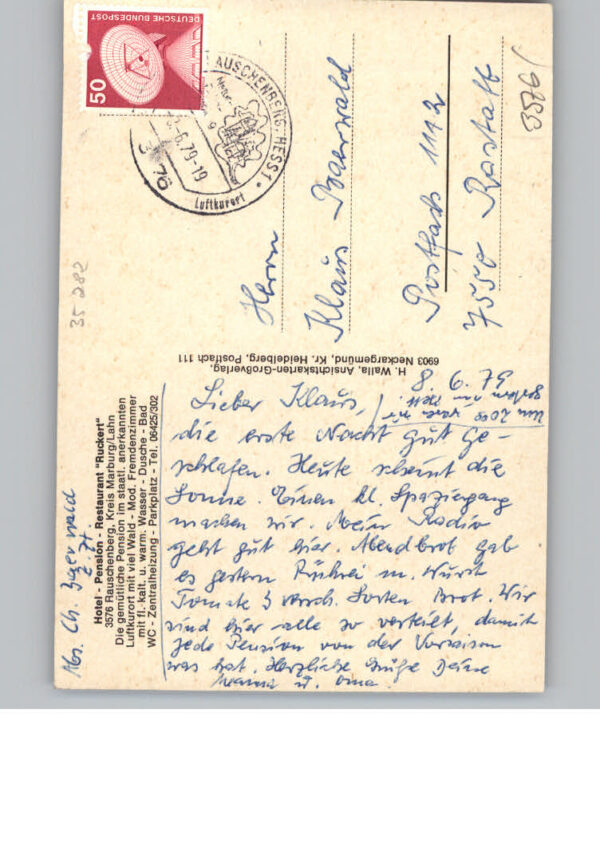 Hotel - Pension - Restaurant "Ruckert"
3576 Rauschenberg, Kreis Marburg/Lahn
Die gemütliche Pension im staatl. anerkannten
Luftkurort mit viel Wald - Mod. Fremdenzimmer
mit fl. kalt. u. warm. Wasser - Dusche - Bad
WC - Zentralheizung - Parkplatz - Tel. 06425/302
Abs. Ch. Baerwald
z. Zt.
8. 6. 79
Lieber Klaus,
Um 20 waren wir
die erste Nacht gut ge-
schlafen. Heute scheint die
Sonne. Einen kl. Spaziergang
machen wir. Mein Radio
geht gut hier. Abendbrot gab
es gestern Rührei m. Wurst
Tomate 3 versch. Sorten Brot. Wir
sind hier alle so verteilt, damit
jede Pension von der Vorsaison
was hat. Herzliche Grüße Deine
Mama u. Oma.
H. Walla, Ansichtskarten-Großverlag,
6903 Neckargemünd, Kr. Heidelberg, Postfach 111
DEUTSCHE BUNDESPOST
50
RAUSCHENBERG, HESS 1
-6.79-19
Luftkurort
Herrn
Klaus Baerwald
Postfach 1142
7550 Rastatt
3576/
35 282